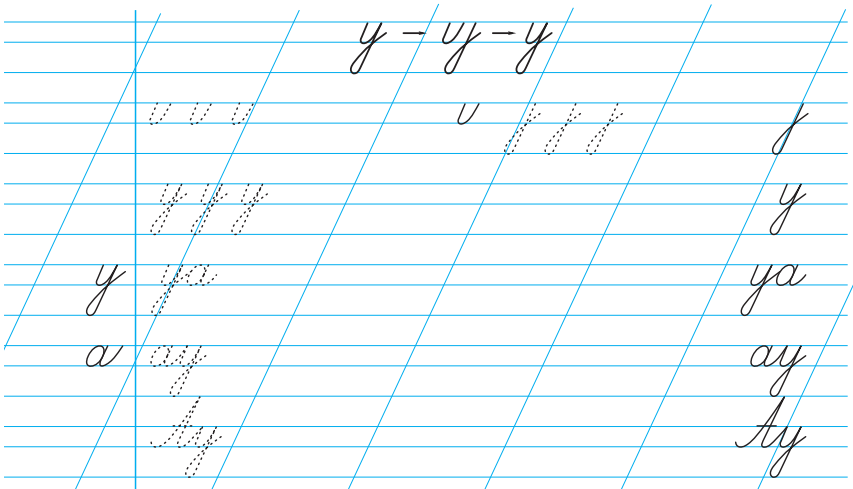 у → у → у
у у у у
у уа уа
а ау ау
Ау Ау